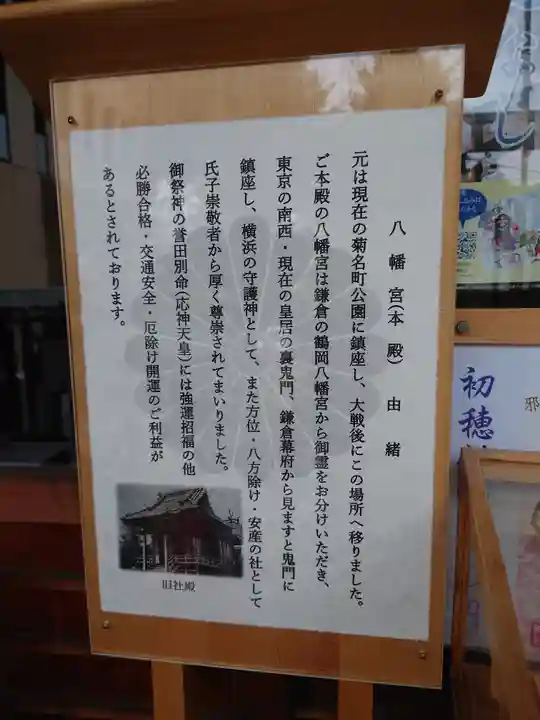 八幡宮(本殿) 由緒
元は現在の菊名町公園に鎮座し、大戦後にこの場所へ移りました。
ご本殿の八幡宮は鎌倉の鶴岡八幡宮から御霊をお分けいただき、
東京の南西・現在の皇居の裏鬼門、鎌倉幕府から見ますと鬼門に
鎮座し、横浜の守護神として、また方位・八方除け・安産の社として
氏子崇敬者から厚く尊崇されてまいりました。
御祭神の誉田別命(応神天皇)には強運招福の他
必勝合格・交通安全・厄除け開運のご利益が
あるとされております。
旧社殿
初穂
邪